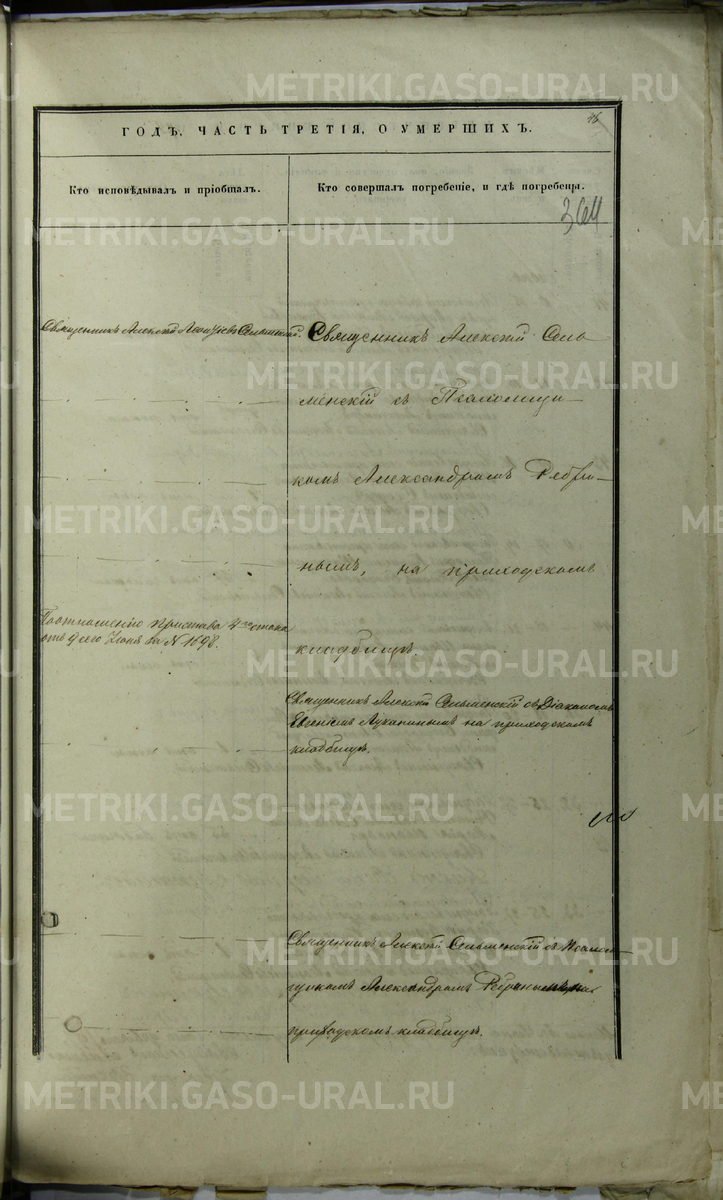 ГОДЪ, ЧАСТЬ ТРЕТІЯ, О УМЕРШИХЪ.
Кто исповѣдывалъ и пріобщалъ.
Кто совершалъ погребеніе, и гдѣ погребены.
Священникъ Алексѣй
Священникъ Алексѣй Сель
менскій съ Псаломщи
комъ Александромъ Ребри-
нымъ, на приходскомъ
кладбищѣ.
По отношенію Пристава 4го стана
отъ 9 сего Іюня за № 1698.
Священникъ Алексѣй Сельменскій съ Діакономъ
Евгеніемъ Луканинымъ на приходскомъ
кладбищѣ.
Священникъ Алексѣй Сельменскій съ Псалом
щикомъ Александромъ Ребринымъ на
приходскомъ кладбищѣ.
METRIKI.GASO-URAL.RU
METRIKI.GASO-URAL.RU
METRIKI.GASO-URAL.RU
METRIKI.GASO-URAL.RU
METRIKI.GASO-URAL.RU
METRIKI.GASO-URAL.RU
METRIKI.GASO-URAL.RU
METRIKI.GASO-URAL.RU